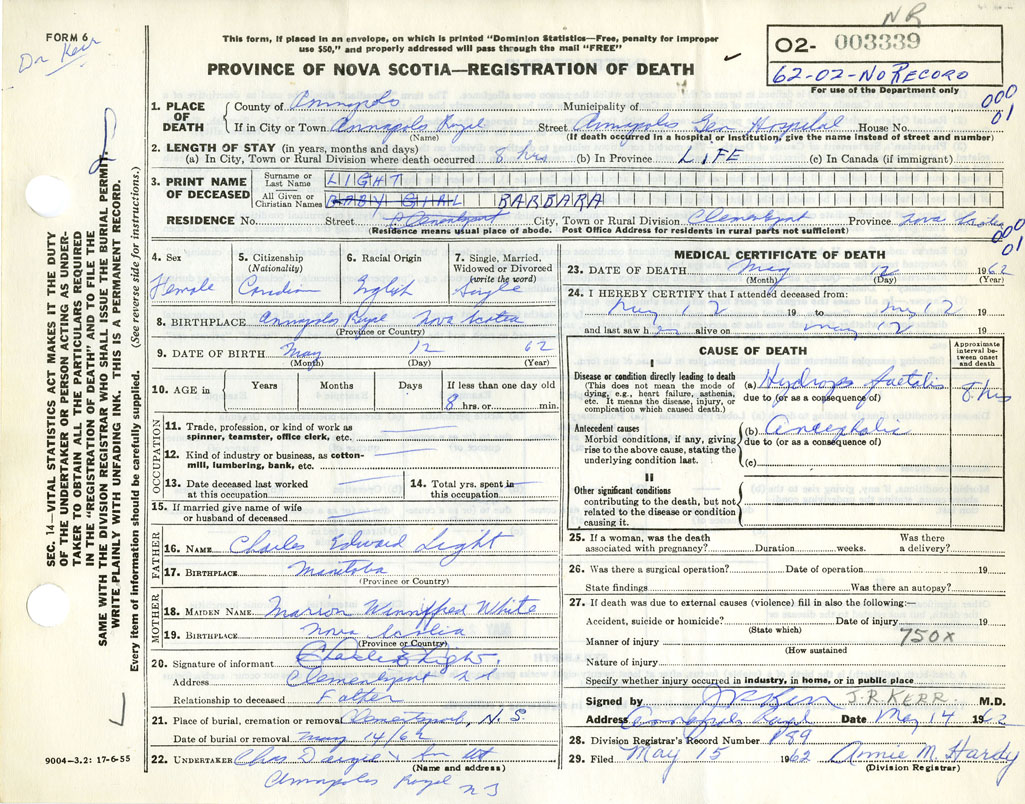 NR
FORM 6
Dr Kerr
This form, if placed in an envelope, on which is printed "Dominion Statistics—Free, penalty for improper
use $50," and properly addressed will pass through the mail "FREE"
O2- 003339
62-02-No RECORD
For use of the Department only
PROVINCE OF NOVA SCOTIA—REGISTRATION OF DEATH
000
01
1. PLACE OF DEATH
County of Annapolis Municipality of
If in City or Town Annapolis Royal Street Annapolis Gen Hospital House No.
(Name) (If death occurred in a hospital or institution, give the name instead of street and number)
2. LENGTH OF STAY (in years, months and days)
(a) In City, Town or Rural Division where death occurred 8 hrs (b) In Province LIFE (c) In Canada (if immigrant)
3. PRINT NAME OF DECEASED
Surname or Last Name LIGHT
All Given or Christian Names BABY GIRL BARBARA
RESIDENCE No. Street Clementsport City, Town or Rural Division Clementsport Province Nova Scotia
(Residence means usual place of abode. Post Office Address for residents in rural parts not sufficient)
000
01
SEC. 14—VITAL STATISTICS ACT MAKES IT THE DUTY
OF THE UNDERTAKER OR PERSON ACTING AS UNDER-
TAKER TO OBTAIN ALL THE PARTICULARS REQUIRED
IN THE "REGISTRATION OF DEATH" AND TO FILE THE
SAME WITH THE DIVISION REGISTRAR WHO SHALL ISSUE THE BURIAL PERMIT.
WRITE PLAINLY WITH UNFADING INK. THIS IS A PERMANENT RECORD.
Every item of information should be carefully supplied. (See reverse side for instructions.)
4. Sex
Female
5. Citizenship
(Nationality)
Canadian
6. Racial Origin
English
7. Single, Married,
Widowed or Divorced
(write the word)
Single
8. BIRTHPLACE Annapolis Royal Nova Scotia
(Province or Country)
9. DATE OF BIRTH May 12 62
(Month) (Day) (Year)
10. AGE in Years Months Days If less than one day old
8 hrs. or min.
OCCUPATION
11. Trade, profession, or kind of work as
spinner, teamster, office clerk, etc.
12. Kind of industry or business, as cotton-
mill, lumbering, bank, etc.
13. Date deceased last worked
at this occupation
14. Total yrs. spent in
this occupation
15. If married give name of wife
or husband of deceased
FATHER
16. NAME Charles Edward Light
17. BIRTHPLACE Manitoba
(Province or Country)
MOTHER
18. MAIDEN NAME Marion Winnifred White
19. BIRTHPLACE Nova Scotia
(Province or Country)
20. Signature of informant Charles E Light.
Address Clementsport N S
Relationship to deceased Father
21. Place of burial, cremation or removal Clementsport, N. S.
Date of burial or removal May 14/62
22. UNDERTAKER Chas Dargie & Son
(Name and address)
Annapolis Royal N S
9004—3.2: 17-6-55
MEDICAL CERTIFICATE OF DEATH
23. DATE OF DEATH May 12 1962
(Month) (Day) (Year)
24. I HEREBY CERTIFY that I attended deceased from:
May 12 19 to May 12 19
and last saw her alive on May 12 19
CAUSE OF DEATH
Approximate
interval be-
tween onset
and death
I
Disease or condition directly leading to death
(This does not mean the mode of
dying, e.g., heart failure, asthenia,
etc. It means the disease, injury, or
complication which caused death.)
(a) Hydrops faetalis 8 hrs
due to (or as a consequence of)
Antecedent causes
Morbid conditions, if any, giving
rise to the above cause, stating the
underlying condition last.
(b) Anacephalic
due to (or as a consequence of)
(c)
II
Other significant conditions
contributing to the death, but not
related to the disease or condition
causing it.
25. If a woman, was the death
associated with pregnancy? Duration weeks. Was there
a delivery?
26. Was there a surgical operation? Date of operation 19
State findings Was there an autopsy?
27. If death was due to external causes (violence) fill in also the following:—
Accident, suicide or homicide? Date of injury 19
(State which)
Manner of injury 750x
(How sustained
Nature of injury
Specify whether injury occurred in industry, in home, or in public place
Signed by J R Kerr J.R. KERR. M.D.
Address Annapolis Royal Date May 14 1962
28. Division Registrar's Record Number P89
29. Filed May 15 1962 Annie M. Hardy
(Division Registrar)